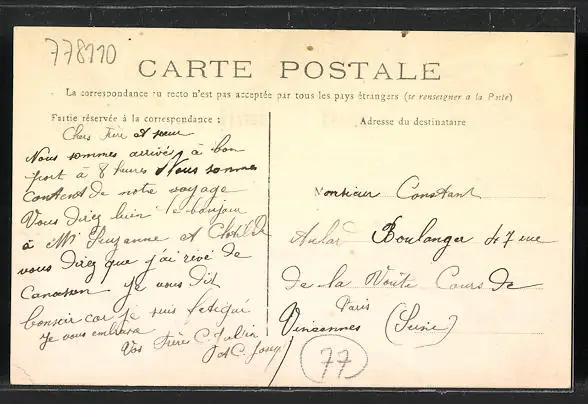 778110
CARTE POSTALE
La correspondance au recto n'est pas acceptée par tous les pays étrangers (se renseigner a la Poste)
Partie réservée à la correspondance :
Adresse du destinataire
Chers Frère et sœur
Nous sommes arrivés à bon
port à 8 heures Nous sommes
content de notre voyage
Vous direz bien le bonjour
à Mr Suzanne et Clotilde
vous direz que j'ai rêvé de
je vous dit
bonsoir car je suis fatigué
Je vous embrasse
Vos Frère C.
et C.
Monsieur Constant
Boulanger 47 rue
de la Voute Cours de
Vincennes Paris (Seine)
77